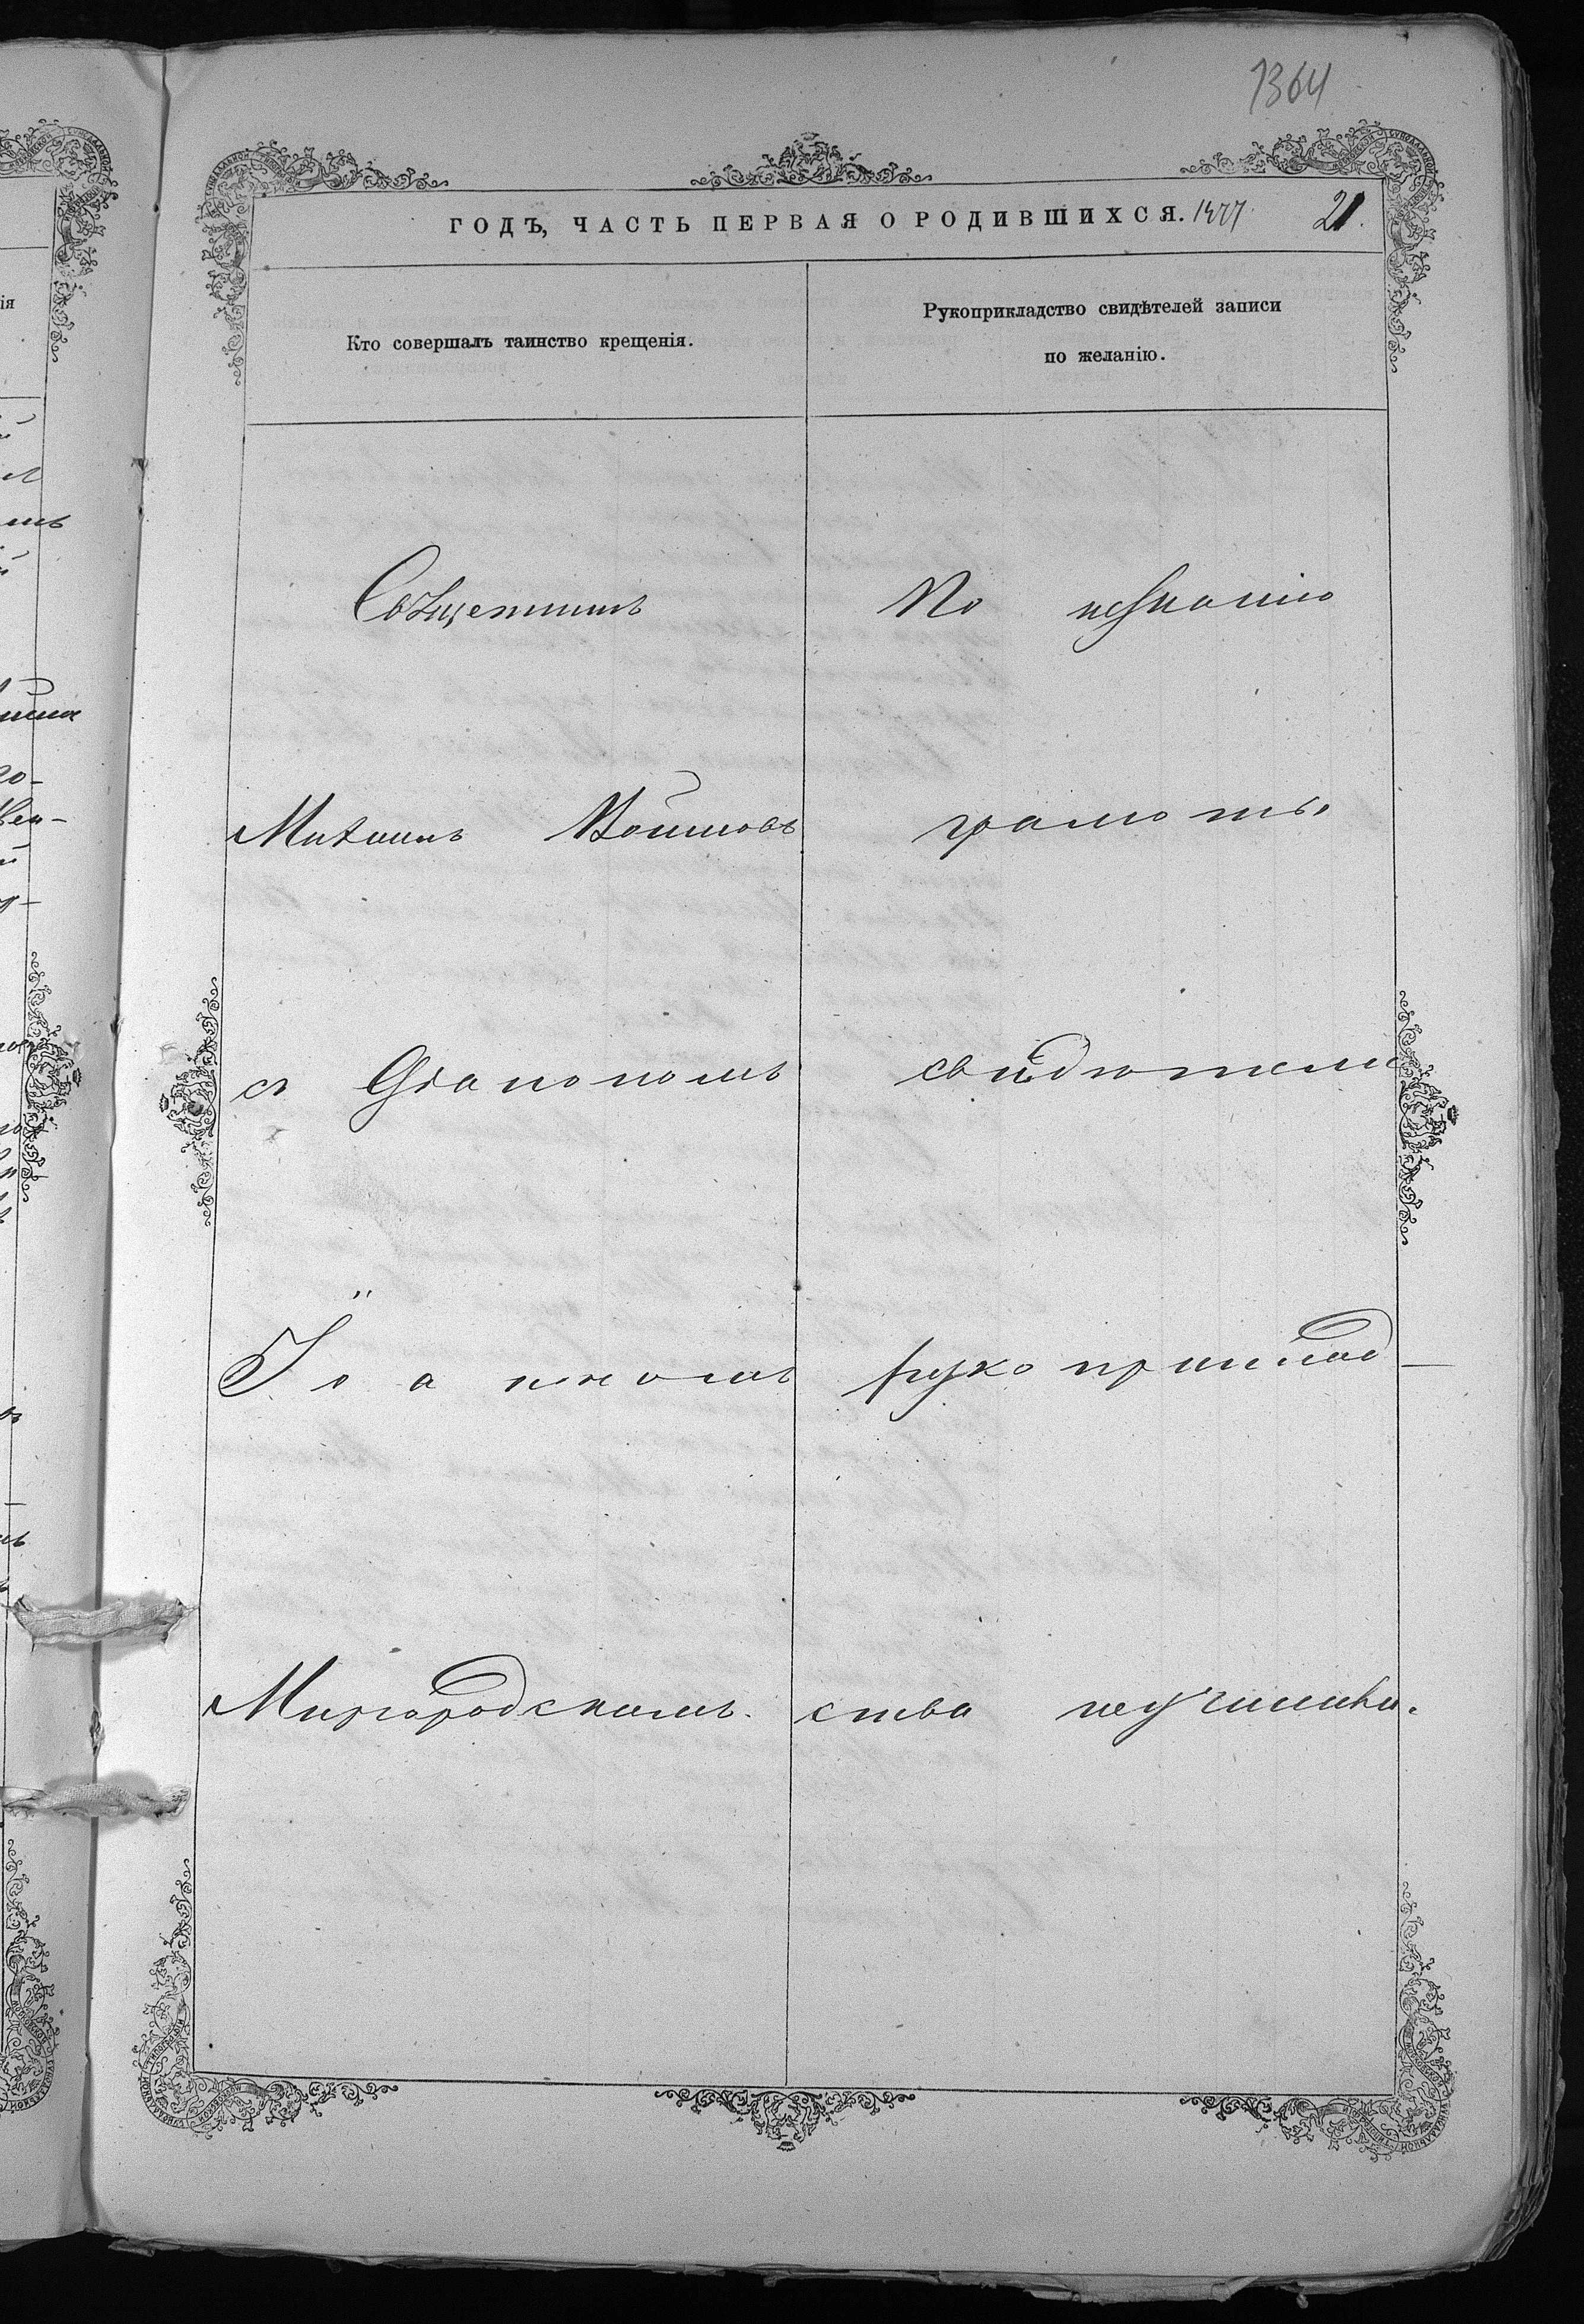 1364
ГОДЪ, ЧАСТЬ ПЕРВАЯ О РОДИВШИХСЯ. 1877 21.
Кто совершалъ таинство крещенія.
Рукоприкладство свидѣтелей записи
по желанію.
Священникъ
Михаилъ
съ Діакономъ
Іоанномъ
Миргородскимъ.
По незнанію
грамоты
свидѣтели
рукоприклад-
ства неучинили.